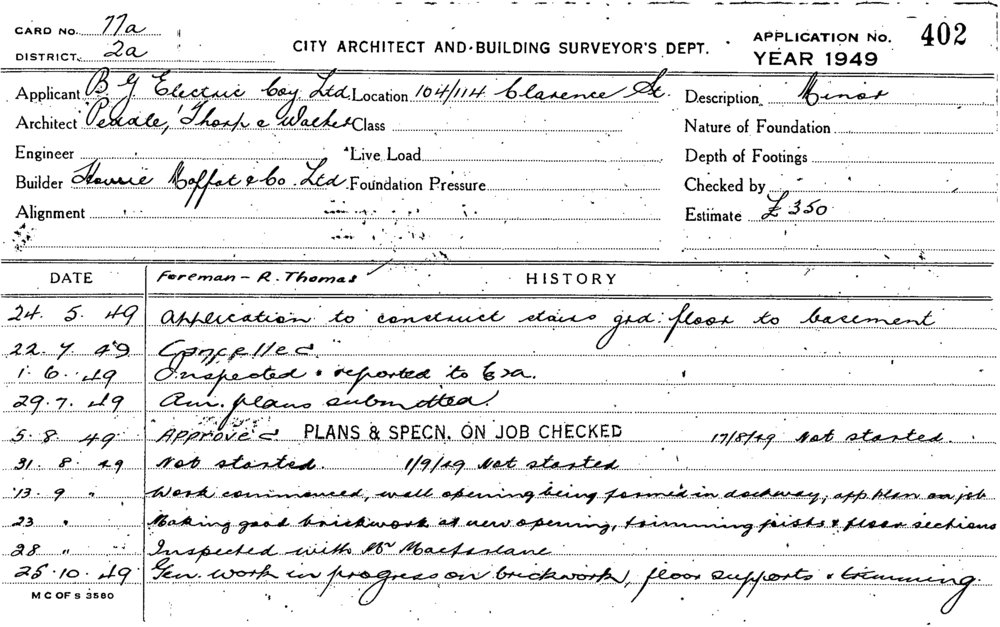 CARD NO. 77a
DISTRICT. 2a
CITY ARCHITECT AND BUILDING SURVEYOR'S DEPT.
APPLICATION NO. 402
YEAR 1949
Applicant B G Electric Coy Ltd. Location 104/114 Clarence St. Description Minor
Architect Peddle, Thorp & Walker Class Nature of Foundation
Engineer Live Load Depth of Footings
Builder Howie Moffat & Co Ltd. Foundation Pressure Checked by
Alignment Estimate £350
DATE Foreman - R. Thomas HISTORY
24. 5. 49 Application to construct stairs grd. floor to basement
22. 7. 49 Cancelled
1. 6. 49 Inspected & reported to
29. 7. 49 Am. plans submitted.
5. 8. 49 Approved PLANS & SPECN. ON JOB CHECKED 17/8/49 Not started.
31. 8. 49 Not started. 1/9/49 Not started
13. 9 " Work commenced, wall opening being formed in dockway, app. plan on job
23 " Making good brickwork at new opening, trimming joists & floor sections
28 " Inspected with Mr Macfarlane
25. 10. 49 Gen. work in progress on brickwork, floor supports & trimming.
M C OF S 3580